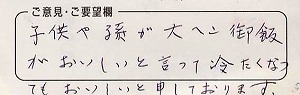 ご意見・ご要望欄
子供や孫が大ヘン御飯
がおいしいと言って冷たくなっ
てもおいしいと申しております。